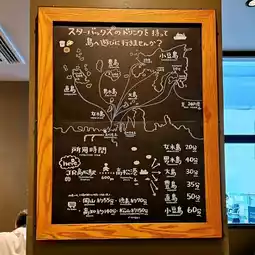 スターバックスのドリンクを持って
島へ遊びに行きませんか?
豊島
小豆島
直島
男木島
女木島
大島
所用時間
here
JR高松駅
高松港
女木島 20分
男木島 40分
大島 30分
豊島 35分
直島 50分
小豆島 60分
岡山 約55分
徳島 約70分
高知 約140分
松山 約150分